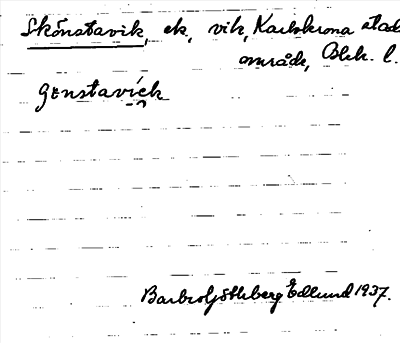 Skönstavik, ek, vik, Karlskrona stads
område, Blek. l.
Barbro Göthberg Edlund 1937.